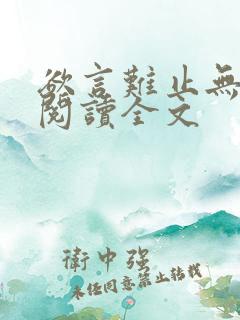 欲言難止無
閱讀全文
衛中强
未经同意禁止转载